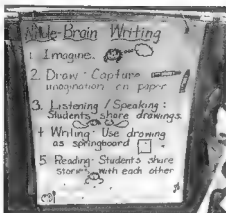 Whole-Brain Writing
1. Imagine.
2. Draw: Capture
imagination on paper
3. Listening / Speaking:
Students share drawings.
4 Writing: Use drawing
as springboard
5 Reading: Students share
stories with each other